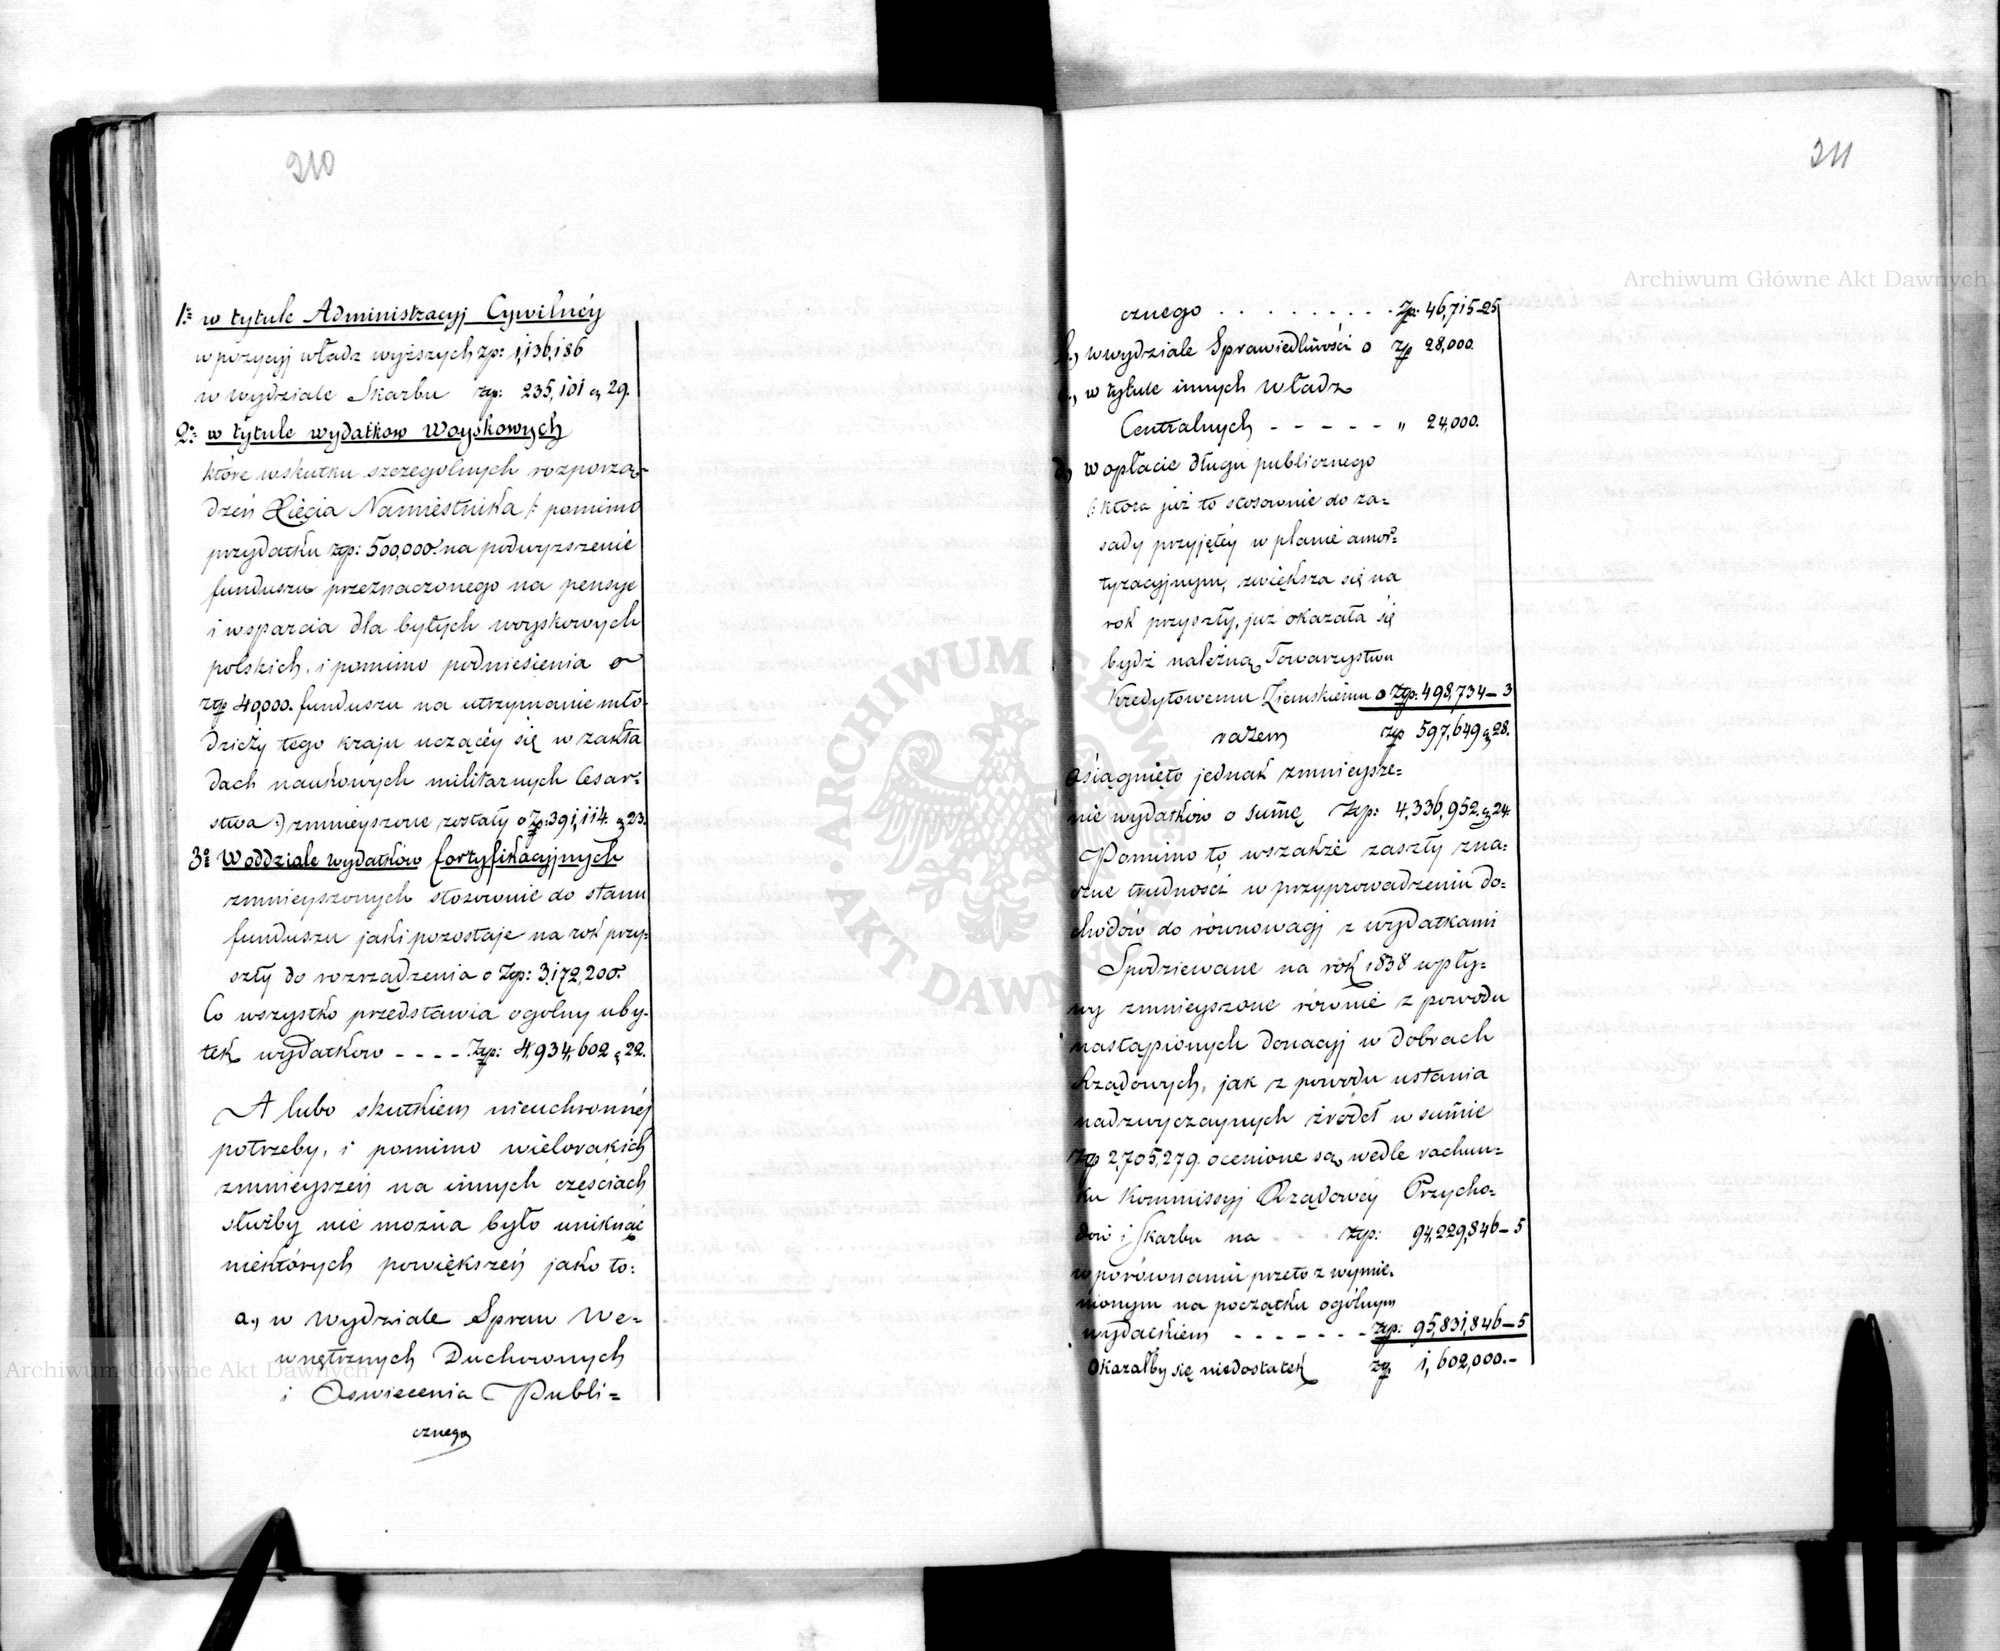 210
1º w tytule Administracyj Cywilnéy
w pozycyj władz wyższych zp: 1,136,186
w wydziale Skarbu zp: 235,101 g 29.
2º w tytule wydatkow Woyskowych
które wskutku szczegolnych rozporzą-
dzeń Xięcia Namiestnika /: pomimo
przydatku zp: 500,000. na podwyzszenie
funduszu przeznaczonego na pensye
i wsparcia dla byłych woyskowych
polskich, i pomimo podniesienia o
zp 40,000. funduszu na utrzymanie mło-
dzieży tego kraju uczącéy się w zakła
dach naukowych militarnych Cesar-
stwa :) zmnieyszone zostały o Zp: 391,114. g 23.
3º W oddziale wydatków fortyfikacyjnych
zmnieyszonych stosownie do stanu
funduszu jaki pozostaje na rok przy-
szły do rozrządzenia o Zp: 3,172,200.
Co wszystko przedstawia ogolny uby-
tek wydatkow - - - - Zp: 4,934,602 g 22.
A lubo skutkiem nieuchronnéj
potrzeby, i pomimo wielorakich
zmnieyszeń na innych częściach
służby nie można było uniknąć
niektórych powiększeń jako to:
a., w Wydziale Spraw We-
wnętrznych Duchownych
i Oswiecenia Publi=
cznego
211
cznego . . . . . . . . . Zp: 46,715-25
b., w wydziale Sprawiedliwości o Zp 28,000.
c., w tytule innych Władz
Centralnych - - - - - " 24,000.
d., w opłacie długu publicznego
(: która już to stosownie do za=
sady przyjętéy w planie amor=
tyzacyjnym, zwiększa się na
rok przyszły, już okazała się
bydź należną Towarzystwu
Kredytowemu Ziemskiemu o Zp: 498,734-3
razem Zp 597,649 g 28.
Osiągnięto jednak zmnieysze=
nie wydatków o summę Zp: 4,336,952. g 24.
Pomimo to wszakże zaszły zna=
czne trudności w przyprowadzeniu do=
chodów do równowagi z wydatkami
Spodziewane na rok 1838 wpły=
wy zmnieyszone równie z powodu
nastąpionych donacyj w dobrach
Rządowych, jak z powodu ustania
nadzwyczaynych źródeł w summie
Zp 2,705,279. ocenione są wedle rachun=
ku Kommissyj Rządowéy Przycho=
dów i Skarbu na Zp: 94,229,846-5
w porównaniu przeto z wymie=
nionym na początku ogólnym
wydatkiem - - - - - - - Zp: 95,831,846-5
Okazałby się niedostatek Zp 1,602,000.-
Archiwum Główne Akt Dawnych
Archiwum Główne Akt Dawnych
ARCHIWUM GŁÓWNE AKT DAWNYCH